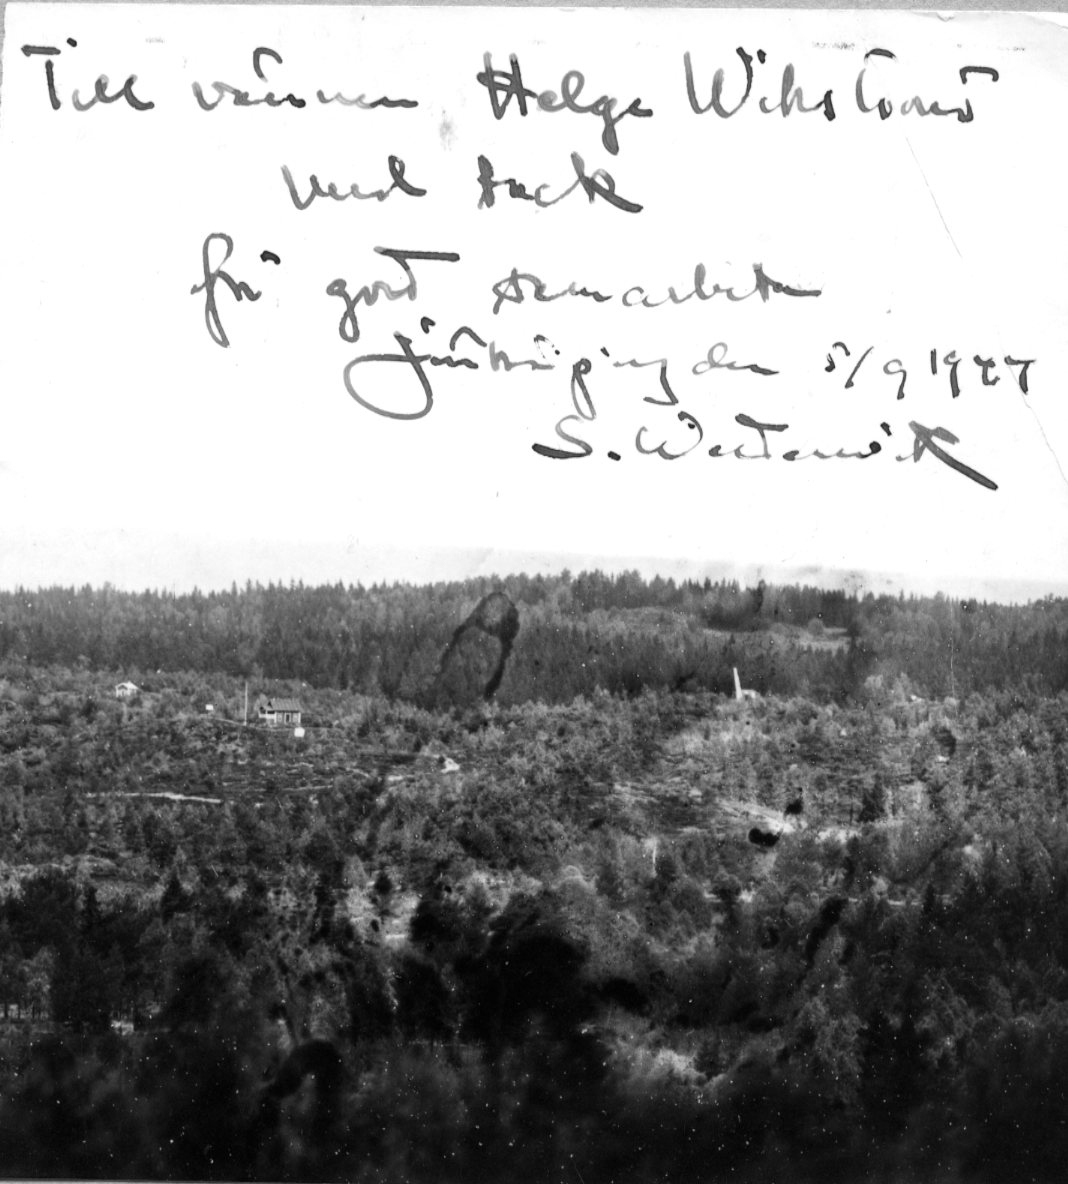 Till vännen Helge Wikström
med tack
för gott samarbete
Jönköping den 5/9 1947
S. Westervik